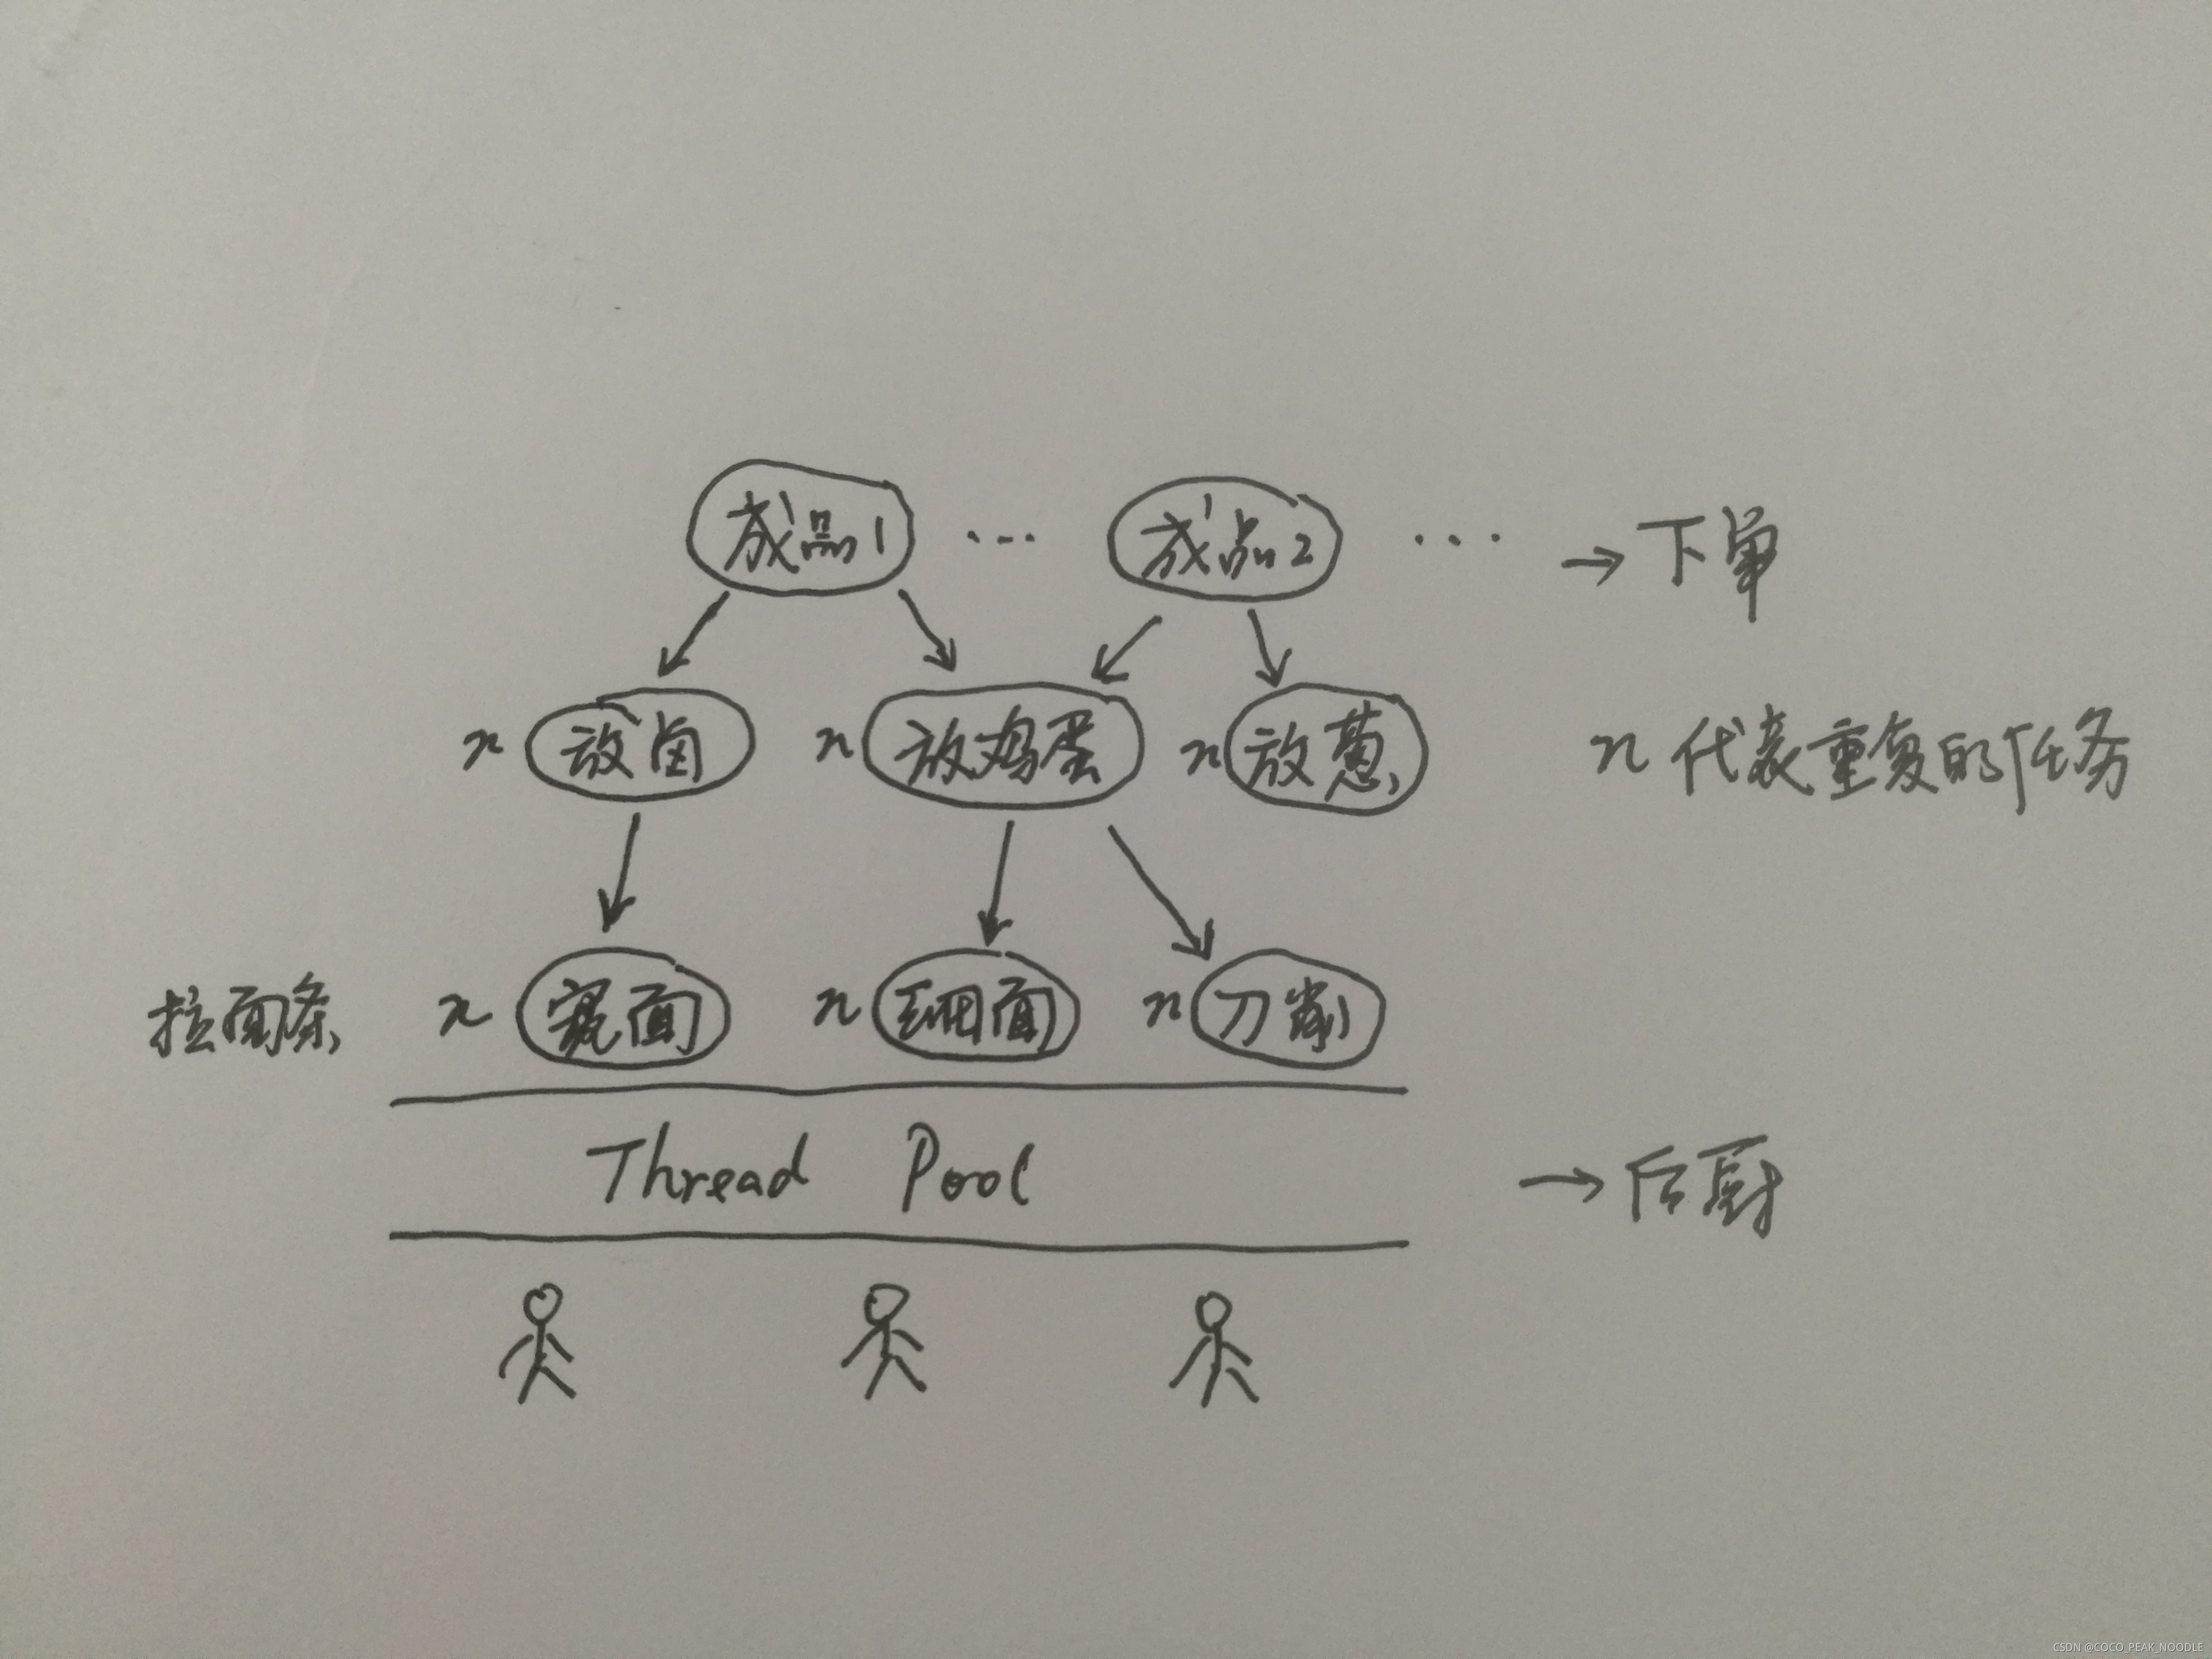 成品1 ... 成品2 ... → 下单
n 放卤 n 放鸡蛋 n 放葱 n 代表重复的任务
拉面条 n 宽面 n 细面 n 刀削
Thread Pool → 后厨
CSDN @COCO_PEAK_NOODLE